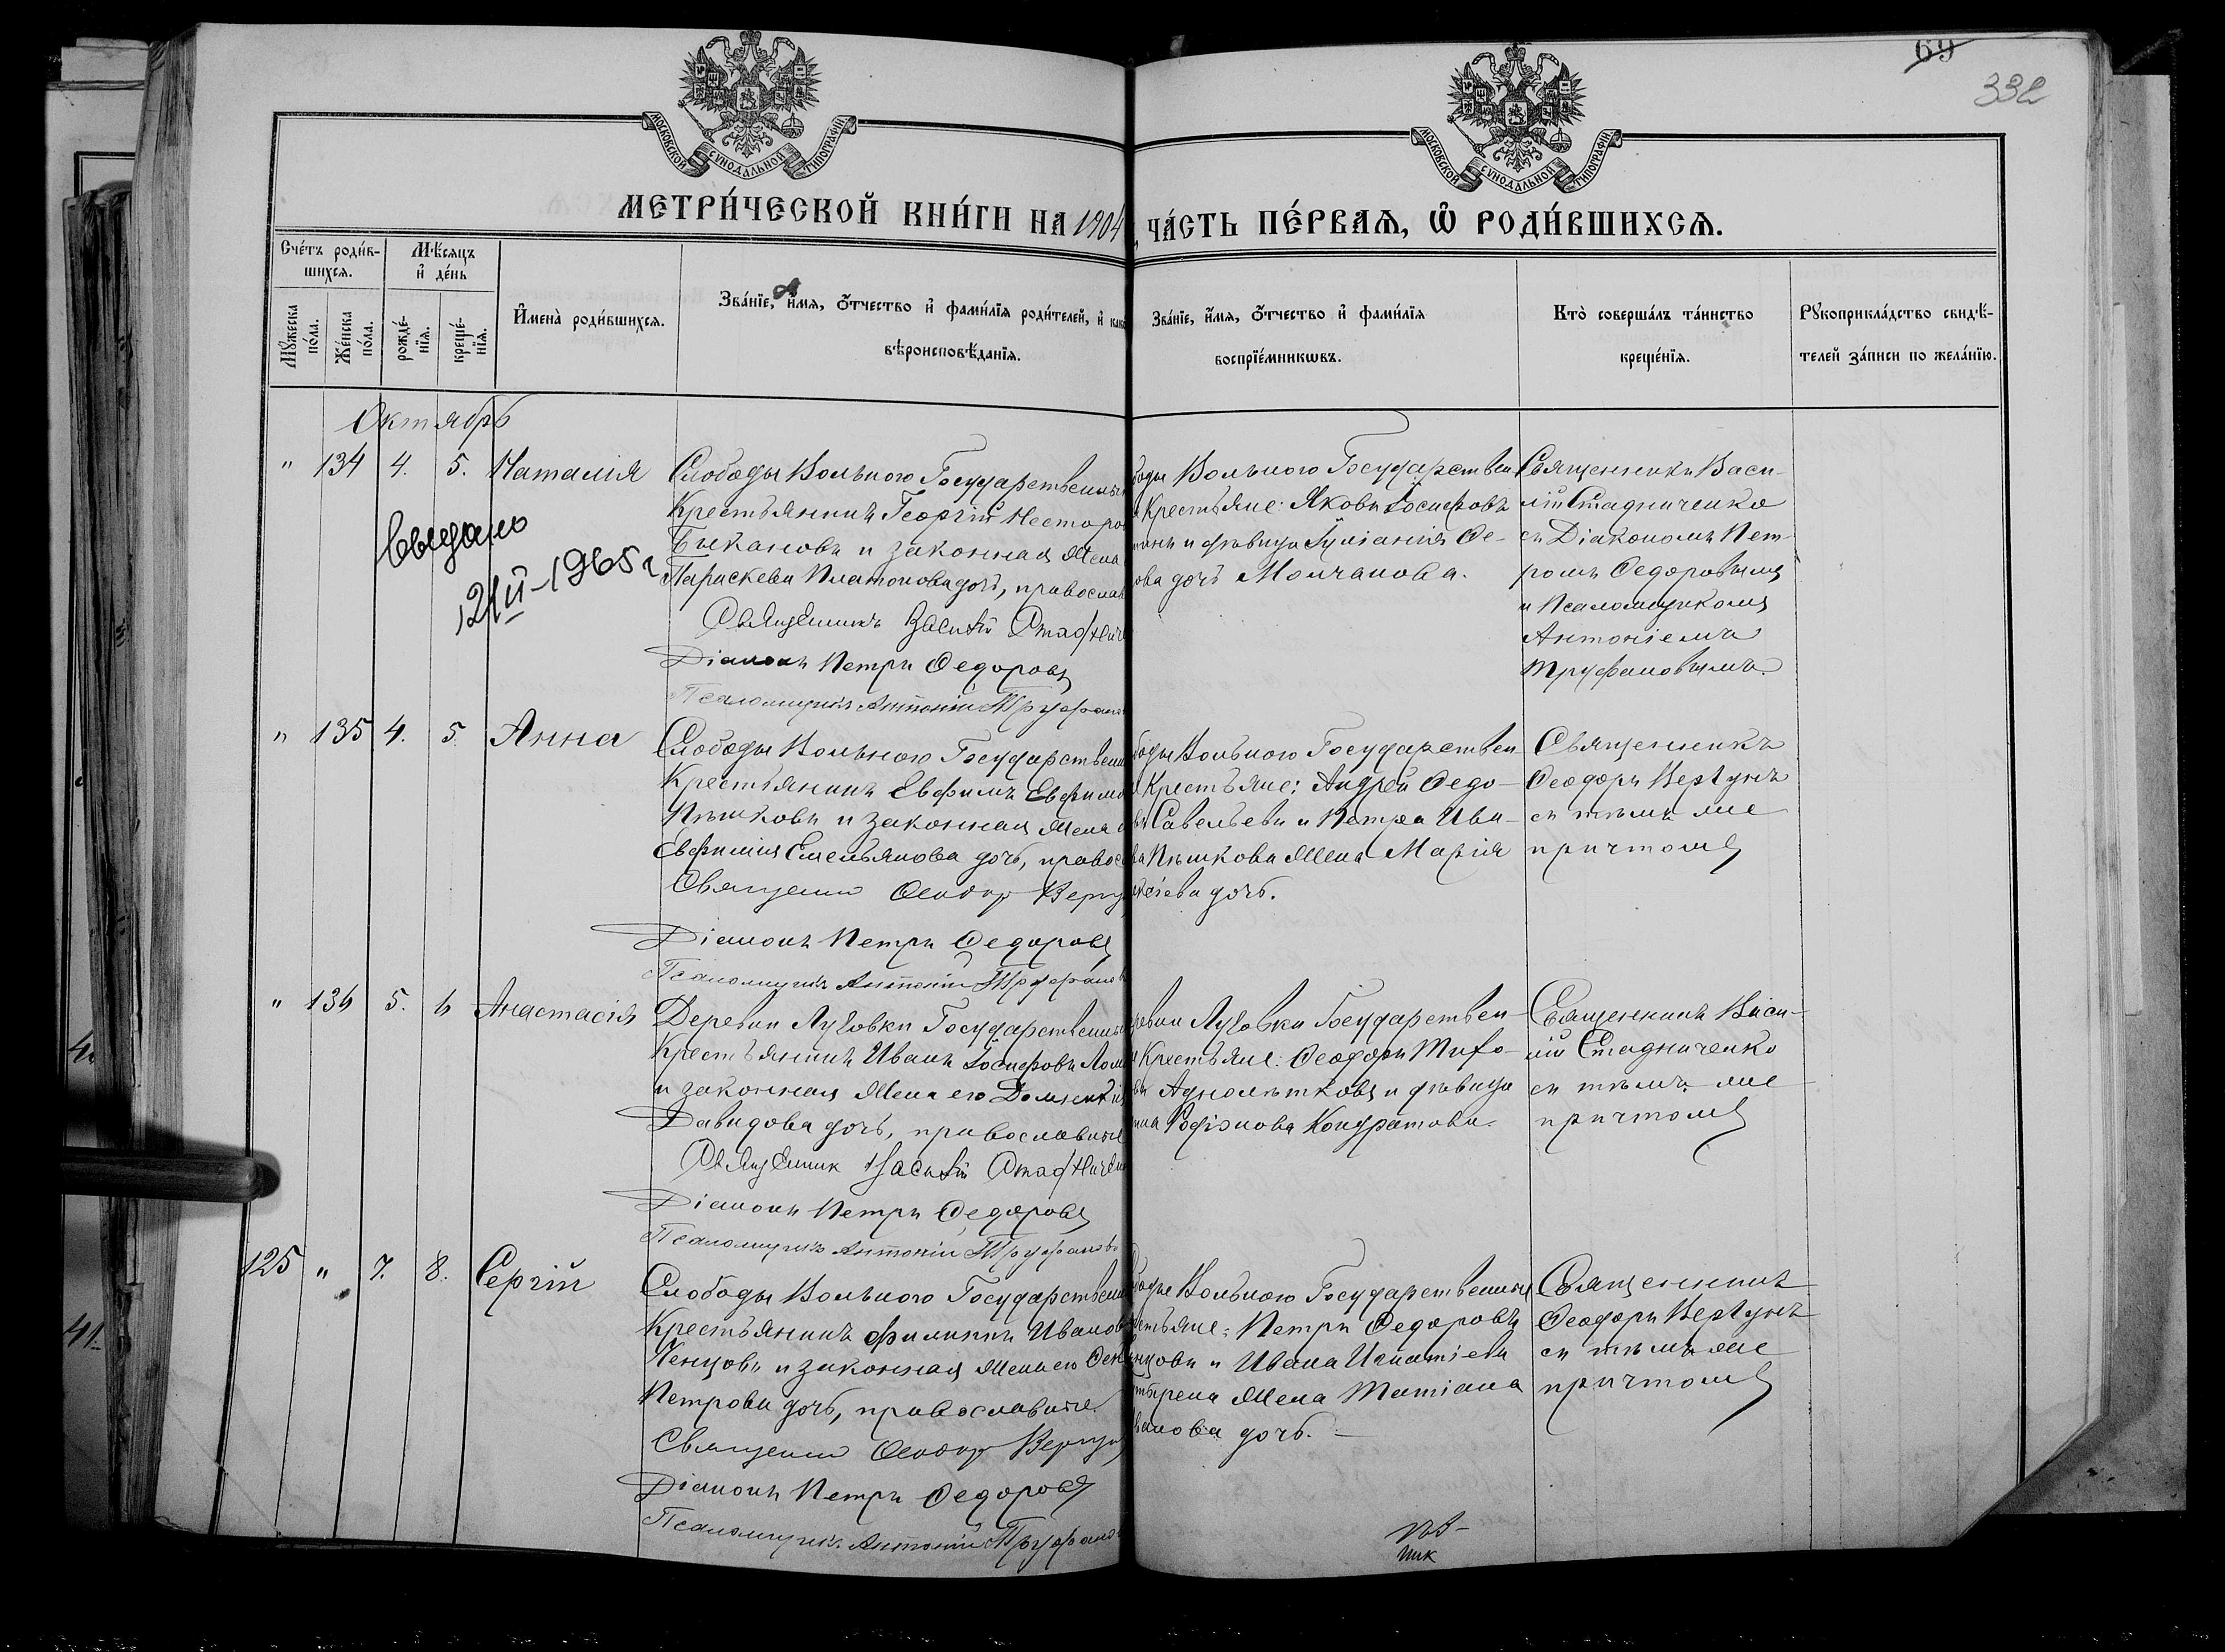 69
332
МОСКОВСКОЙ СѴНОДАЛЬНОЙ ТИПОГРАФІИ
МОСКОВСКОЙ СѴНОДАЛЬНОЙ ТИПОГРАФІИ
МЕТРИ́ЧЕСКОЙ КНИ́ГИ НА 1904
ЧА́СТЬ ПЕ́РВАѦ, Ѡ҆ РОДИ́ВШИХСѦ.
Сче́тъ роди́в-
шихсѧ.
Мѣ́сѧцъ
и҆ де́нь
Мꙋ́жеска
по́ла.
Же́нска
по́ла.
рожде́-
нїѧ.
креще́-
нїѧ.
И҆мена̀ роди́вшихсѧ.
Зва́нїе, и҆́мѧ, ѻ҆́тчество и҆ фами́лїѧ роди́телей, и҆
вѣроисповѣ́данїѧ.
Зва́нїе, и҆́мѧ, ѻ҆́тчество и҆ фами́лїѧ
воспрїе́мникѡвъ.
Кто̀ соверша́лъ та́инство
креще́нїѧ.
Рꙋкоприкла́дство свидѣ́-
телей за́писи по жела́нїю.
Октябрь
" 134 4. 5. Наталія
Выдано
12/II-1965 г
Слободы Вольного Государственный
Крестьянинъ Георгій Несторов
Быкановъ и законная жена
Параскева Платонова дочь, православ
Священникъ Василій Стадниче
Діаконъ Петръ Федоровъ
Псаломщикъ Антоній Труфанов
боды Вольного Государствен-
Крестьяне: Яковъ Іосифовъ
и дѣвица Іуліанія Ѳе-
ова дочь Молчанова.
Священникъ Васи-
лій Стадниченко
съ Діакономъ Пет-
ромъ Федоровымъ
и Псаломщикомъ
Антоніемъ
Труфановымъ.
" 135 4. 5. Анна
Слободы Вольного Государствен
Крестьянинъ Евфимъ Евфимов
Пѣшковъ и законная жена
Евфимія Емельянова дочь, правос
Священник Ѳеодор Верту
Діаконъ Петръ Федоровъ
Псаломщикъ Антоній Труфанов
боды Вольного Государствен-
Крестьяне: Андрей Ѳедо-
въ Савельевъ и Петра Ива-
ва Пѣшкова жена Марія
ксіева дочь.
Священникъ
Ѳеодоръ Вертунъ
съ тѣмъ же
причтомъ
" 136 5. 6 Анастасія
Деревни Луговки Государственный
Крестьянинъ Иванъ Іосифовъ Лом
и законная жена его Домникія
Давидова дочь, православные
Священник Василій Стадничен
Діаконъ Петръ Федоровъ
Псаломщикъ Антоній Труфановъ
ревни Луговки Государствен-
Крестьяне: Ѳеодоръ Тито-
въ Аднолѣтковъ и дѣвица
Родіонова Кондратова.
Священникъ Васи-
лій Стадниченко
съ тѣмъ же
причтомъ
125 " 7. 8. Сергій
Слободы Вольного Государствен
Крестьянинъ Филиппъ Иванов
Ченцовъ и законная жена его
Петрова дочь, православные.
Священник Ѳеодор Верту
Діаконъ Петръ Федоровъ
Псаломщикъ Антоній Труфанов
боды Вольного Государственные
стьяне: Петръ Федоровъ
нцовъ и Ивана Игнатіева
жена Татіана
ванова дочь.
Священникъ
Ѳеодоръ Вертунъ
съ тѣмъ же
причтомъ